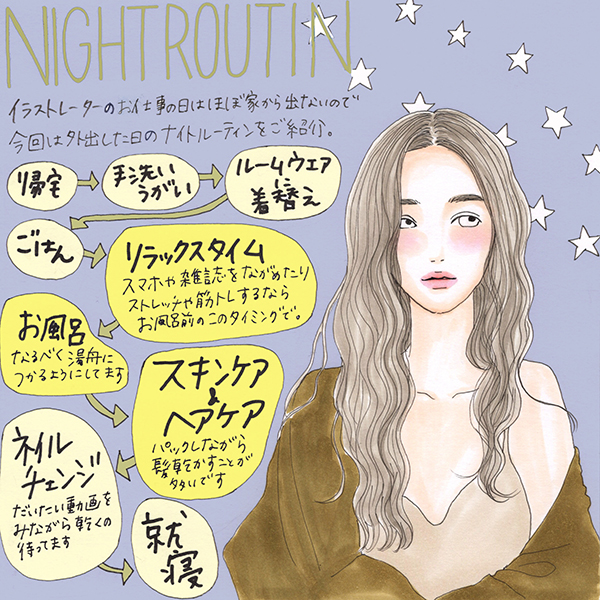 NIGHTROUTIN
イラストレーターのお仕事の日はほぼ家から出ないので
今回は外出した日のナイトルーティンをご紹介。
帰宅
手洗い
うがい
ルームウエア
に
着替え
ごはん
リラックスタイム
スマホや雑誌をながめたり
ストレッチや筋トレするなら
お風呂前のこのタイミングで。
お風呂
なるべく湯舟に
つかるようにしてます
スキンケア
&
ヘアケア
パックしながら
髪乾かすことが
多いです
ネイル
チェンジ
だいたい動画を
みながら乾くの
待ってます
就
寝